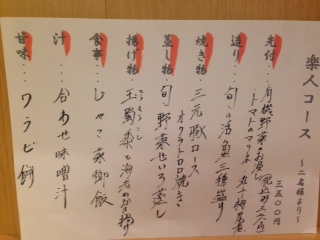 楽人コース
〜二名様より〜
三五〇〇円
先付・・・有機野菜のお浸し
トマトのマリネ 丸十梅甘煮
造り・・・旬の活魚三種盛り
焼き物・・・三元豚ロース
オクラトロロ焼き
蒸し物・・・旬野菜せいろ蒸し
揚げ物・・・玉蜀黍と海老かき揚げ
食事・・・じゃこ菜御飯
汁・・・合わせ味噌汁
甘味・・・ワラビ餅